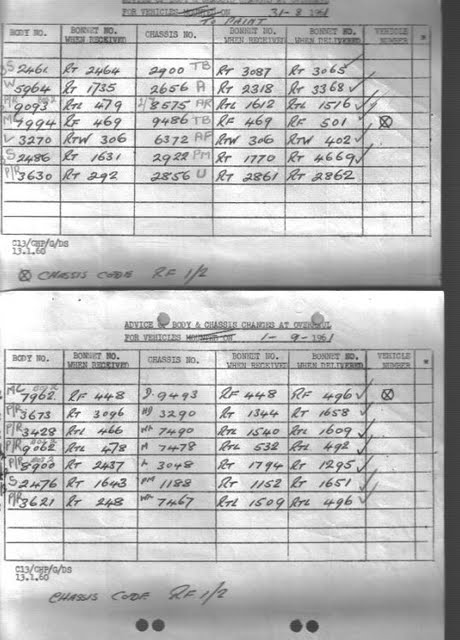 ADVICE OF BODY & CHASSIS CHANGES AT OVERHAUL
FOR VEHICLES MOUNTED ON 31-8-1961
TO PAINT
BODY NO. BONNET NO. WHEN RECEIVED CHASSIS NO. BONNET NO. WHEN RECEIVED BONNET NO. WHEN DELIVERED VEHICLE NUMBER *
S 2461 RT 2464 2900 TB RT 3087 RT 3065 ✓
W 5964 RT 1735 2656 A RT 2318 RT 3368 ✓
9093 RTL 479 8575 AR RTL 1612 RTL 1516 ✓
9994 RF 469 9486 TB RF 469 RF 501 ✓ ⊠
V 3270 RTW 306 6372 AP RTW 306 RTW 402 ✓
S 2486 RT 1631 2922 PM RT 1770 RT 4669 ✓
P/R 3630 RT 292 2856 U RT 2861 RT 2862
C13/CHP/G/DS
13.1.60
⊠ CHASSIS CODE RF 1/2
ADVICE OF BODY & CHASSIS CHANGES AT OVERHAUL
FOR VEHICLES MOUNTED ON 1-9-1961
BODY NO. BONNET NO. WHEN RECEIVED CHASSIS NO. BONNET NO. WHEN RECEIVED BONNET NO. WHEN DELIVERED VEHICLE NUMBER *
7962 RF 448 9493 RF 448 RF 496 ✓ ⊠
P/R 3673 RT 3096 3290 RT 1344 RT 1658 ✓
P/R 3428 RTL 466 7490 RTL 1540 RTL 1609 ✓
P/R 9062 RTL 478 7478 RTL 532 RTL 492 ✓
P/R 8900 RT 2437 3048 RT 1794 RT 1295 ✓
S 2476 RT 1643 PM 1188 RT 1152 RT 1651 ✓
P/R 3621 RT 248 7467 RTL 1509 RTL 496 ✓
C13/CHP/G/DS
13.1.60
CHASSIS CODE RF 1/2